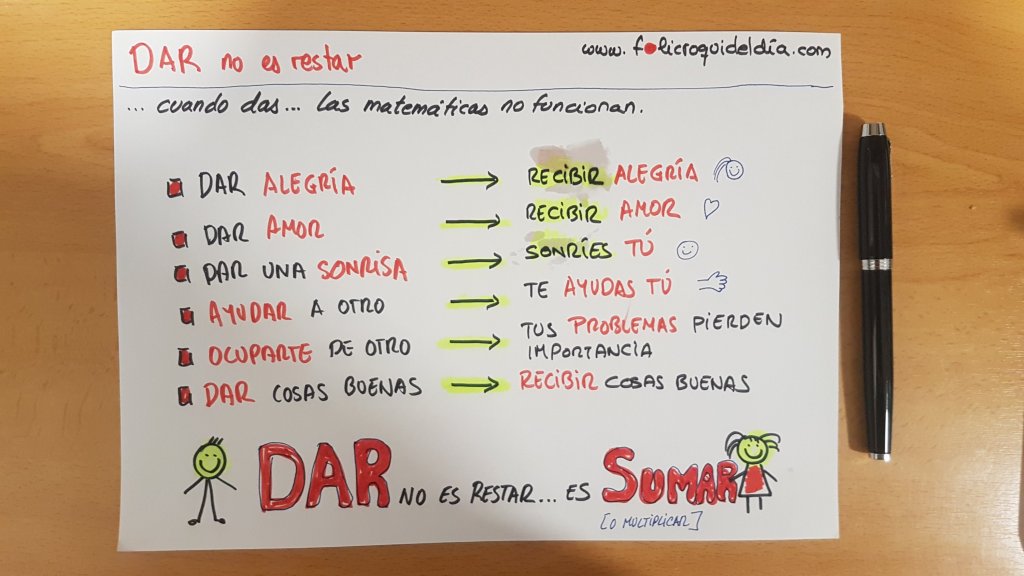 DAR no es restar
www.folicroquideldía.com
... cuando das... las matemáticas no funcionan.
DAR ALEGRÍA → RECIBIR ALEGRÍA
DAR AMOR → RECIBIR AMOR
DAR UNA SONRISA → SONRÍES TÚ
AYUDAR A OTRO → TE AYUDAS TÚ
OCUPARTE DE OTRO → TUS PROBLEMAS PIERDEN
IMPORTANCIA
DAR COSAS BUENAS → RECIBIR COSAS BUENAS
DAR NO ES RESTAR... ES SUMAR
[O MULTIPLICAR]